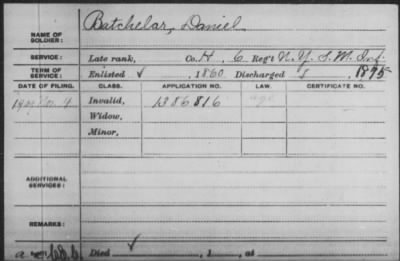 NAME OF SOLDIER: Batchelar, Daniel
SERVICE: Late rank, Co. H, 6 Reg't N.Y. S. M. Inf.
TERM OF SERVICE: Enlisted ✓, 1860 Discharged, 1875
DATE OF FILING. CLASS. APPLICATION NO. LAW. CERTIFICATE NO.
Invalid, 1386816
Widow,
Minor,
ADDITIONAL SERVICES:
REMARKS:
Died ✓, 1, at